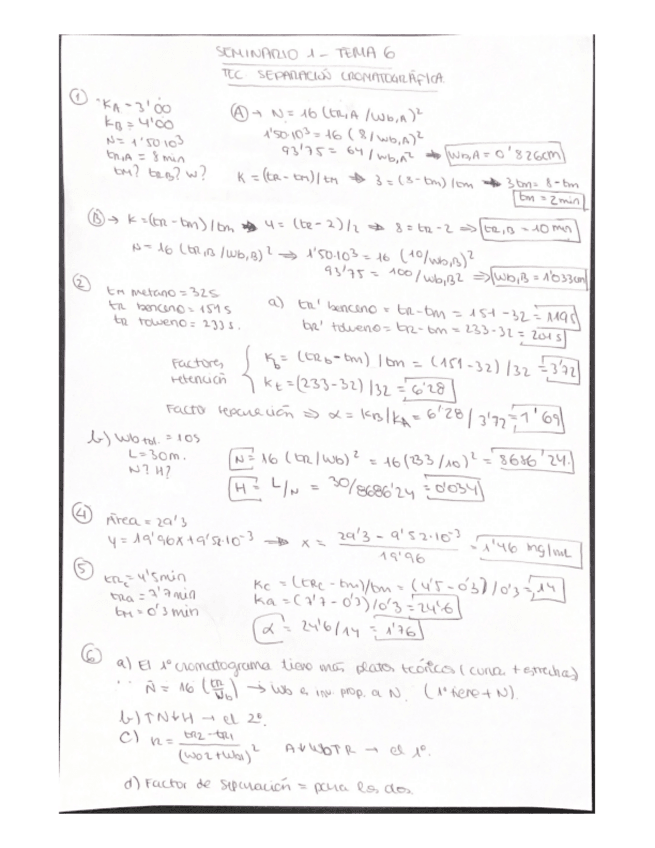 SEMINARIO 1 - TEMA 6
TEC SEPARACIÓN CROMATOGRÁFICA
① KA = 3'00
KB = 4'00
N = 1'50·10³
tR,A = 8 min
tM? tR,B? W?
Ⓐ → N = 16 (tR,A / Wb,A)²
1'50·10³ = 16 (8/Wb,A)²
93'75 = 64/Wb,A² → Wb,A = 0'826cm
K = (tR - tm)/tm → 3 = (8 - tm)/tm → 3tm = 8 - tm
tm = 2min
Ⓑ → K = (tR - tm)/tm → 4 = (tR - 2)/2 → 8 = tR - 2 ⇒ tR,B = 10 min
N = 16 (tR,B / Wb,B)² → 1'50·10³ = 16 (10/Wb,B)²
93'75 = 100/Wb,B2 ⇒ Wb,B = 1'033cm
② tM metano = 32s
tR benceno = 151s
tR tolueno = 233s.
a) tR' benceno = tR - tm = 151 - 32 = 119s
tR' tolueno = tR - tm = 233 - 32 = 201s
Factores retención
Kb = (tRb - tm) / tm = (151 - 32) / 32 = 3'72
Kt = (233 - 32) / 32 = 6'28
Factor separación ⇒ α = KB/KA = 6'28 / 3'72 = 1'69
b) Wb tol. = 10s
L = 30m.
N? H?
N = 16 (tR/Wb)² = 16 (233/10)² = 8686'24.
H = L/N = 30/8686'24 = 0'034
④ Área = 29'3
y = 19'96x + 9'52·10⁻³ → x = 29'3 - 9'52·10⁻³ / 19'96 = 1'46 mg/mL
⑤ tRc = 4'5min
tRa = 7'7min
tM = 0'3 min
Kc = (tRc - tm)/tm = (4'5 - 0'3) / 0'3 = 14
Ka = (7'7 - 0'3) / 0'3 = 24'6
α = 24'6/14 = 1'76
⑥ a) El 1º cromatograma tiene más platos teóricos (curva + estrecha)
N = 16 (tR/Wb)² → Wb es inv. prop. a N. (1º tiene + N).
b) ↑N↓H → el 2º.
c) R = tR2 - tR1 / (Wb2 + Wb1)² A↓Wb↑R → el 1º.
d) Factor de separación = para los dos